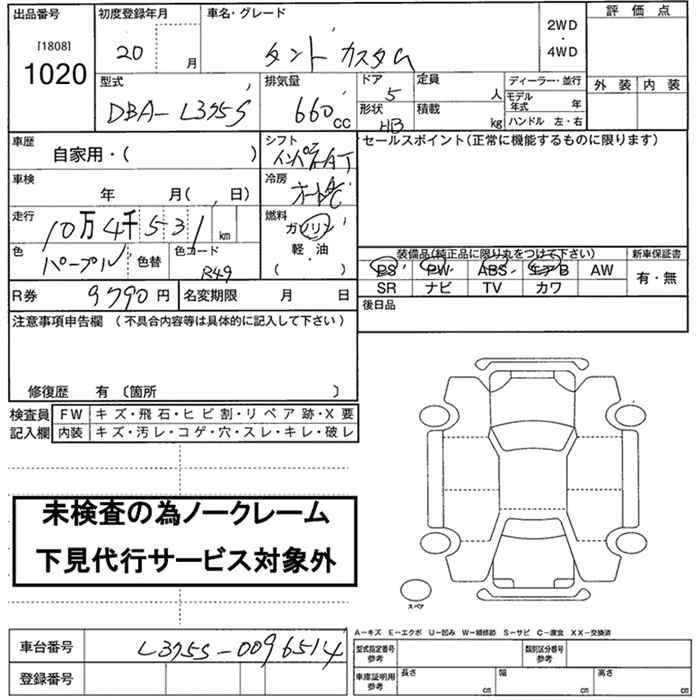 出品番号 初度登録年月 車名・グレード 評価点
[1808]
1020
20 月 タント カスタム 2WD・4WD
型式 排気量 ドア 定員 ディーラー・並行 外装 内装
DBA-L375S 660cc 5 人 モデル年式 年
形状 積載 ハンドル 左・右
HB kg
車歴 シフト セールスポイント(正常に機能するものに限ります)
自家用・( )
車検 冷房
年 月( 日)
走行 燃料
10万4千531km ガソリン
色 色替 色コード 軽・油 装備品(純品に限り丸をつけて下さい) 新車保証書
パープル R49 ( ) PS PW ABS エアB AW 有・無
R券 9790円 名変期限 月 日 SR ナビ TV カワ
注意事項申告欄 (不具合内容等は具体的に記入して下さい) 後日品
修復歴 有 〔箇所 〕
検査員 FW キズ・飛石・ヒビ割・リペア跡・X要
記入欄 内装 キズ・汚レ・コゲ・穴・スレ・キレ・破レ
未検査の為ノークレーム
下見代行サービス対象外
スペア
A-キズ E-エクボ U-凹み W-補修跡 S-サビ C-腐食 XX-交換済
車台番号 L375S-0096514 型式指定番号 参考 類別区分番号
登録番号 車庫証明用 参考 長さ cm 幅 cm 高さ cm